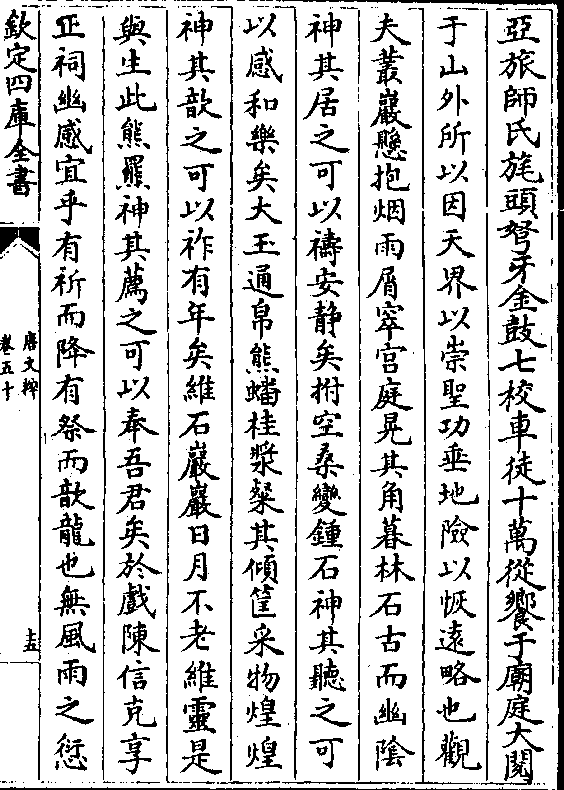 亞旅師氏旄頭弩牙金鼓七校車徒十萬從饗于廟庭大閱
于山外所以因天界以崇聖功垂地險以恢遠略也觀
夫叢巖懸抱烟雨屑窣宫庭晃其角暮林石古而幽陰
神其居之可以禱安靜矣拊空桑變鍾石神其聽之可
以感和樂矣大玉通帛熊蟠桂漿粲其傾筐采物煌煌
神其歆之可以祚有年矣維石巖巖日月不老維靈是
與生此熊羆神其薦之可以奉吾君矣於戲陳信克享
正祠幽感宜乎有祈而降有祭而歆龍也無風雨之愆
欽定四庫全書
唐文粹
卷五十
十五